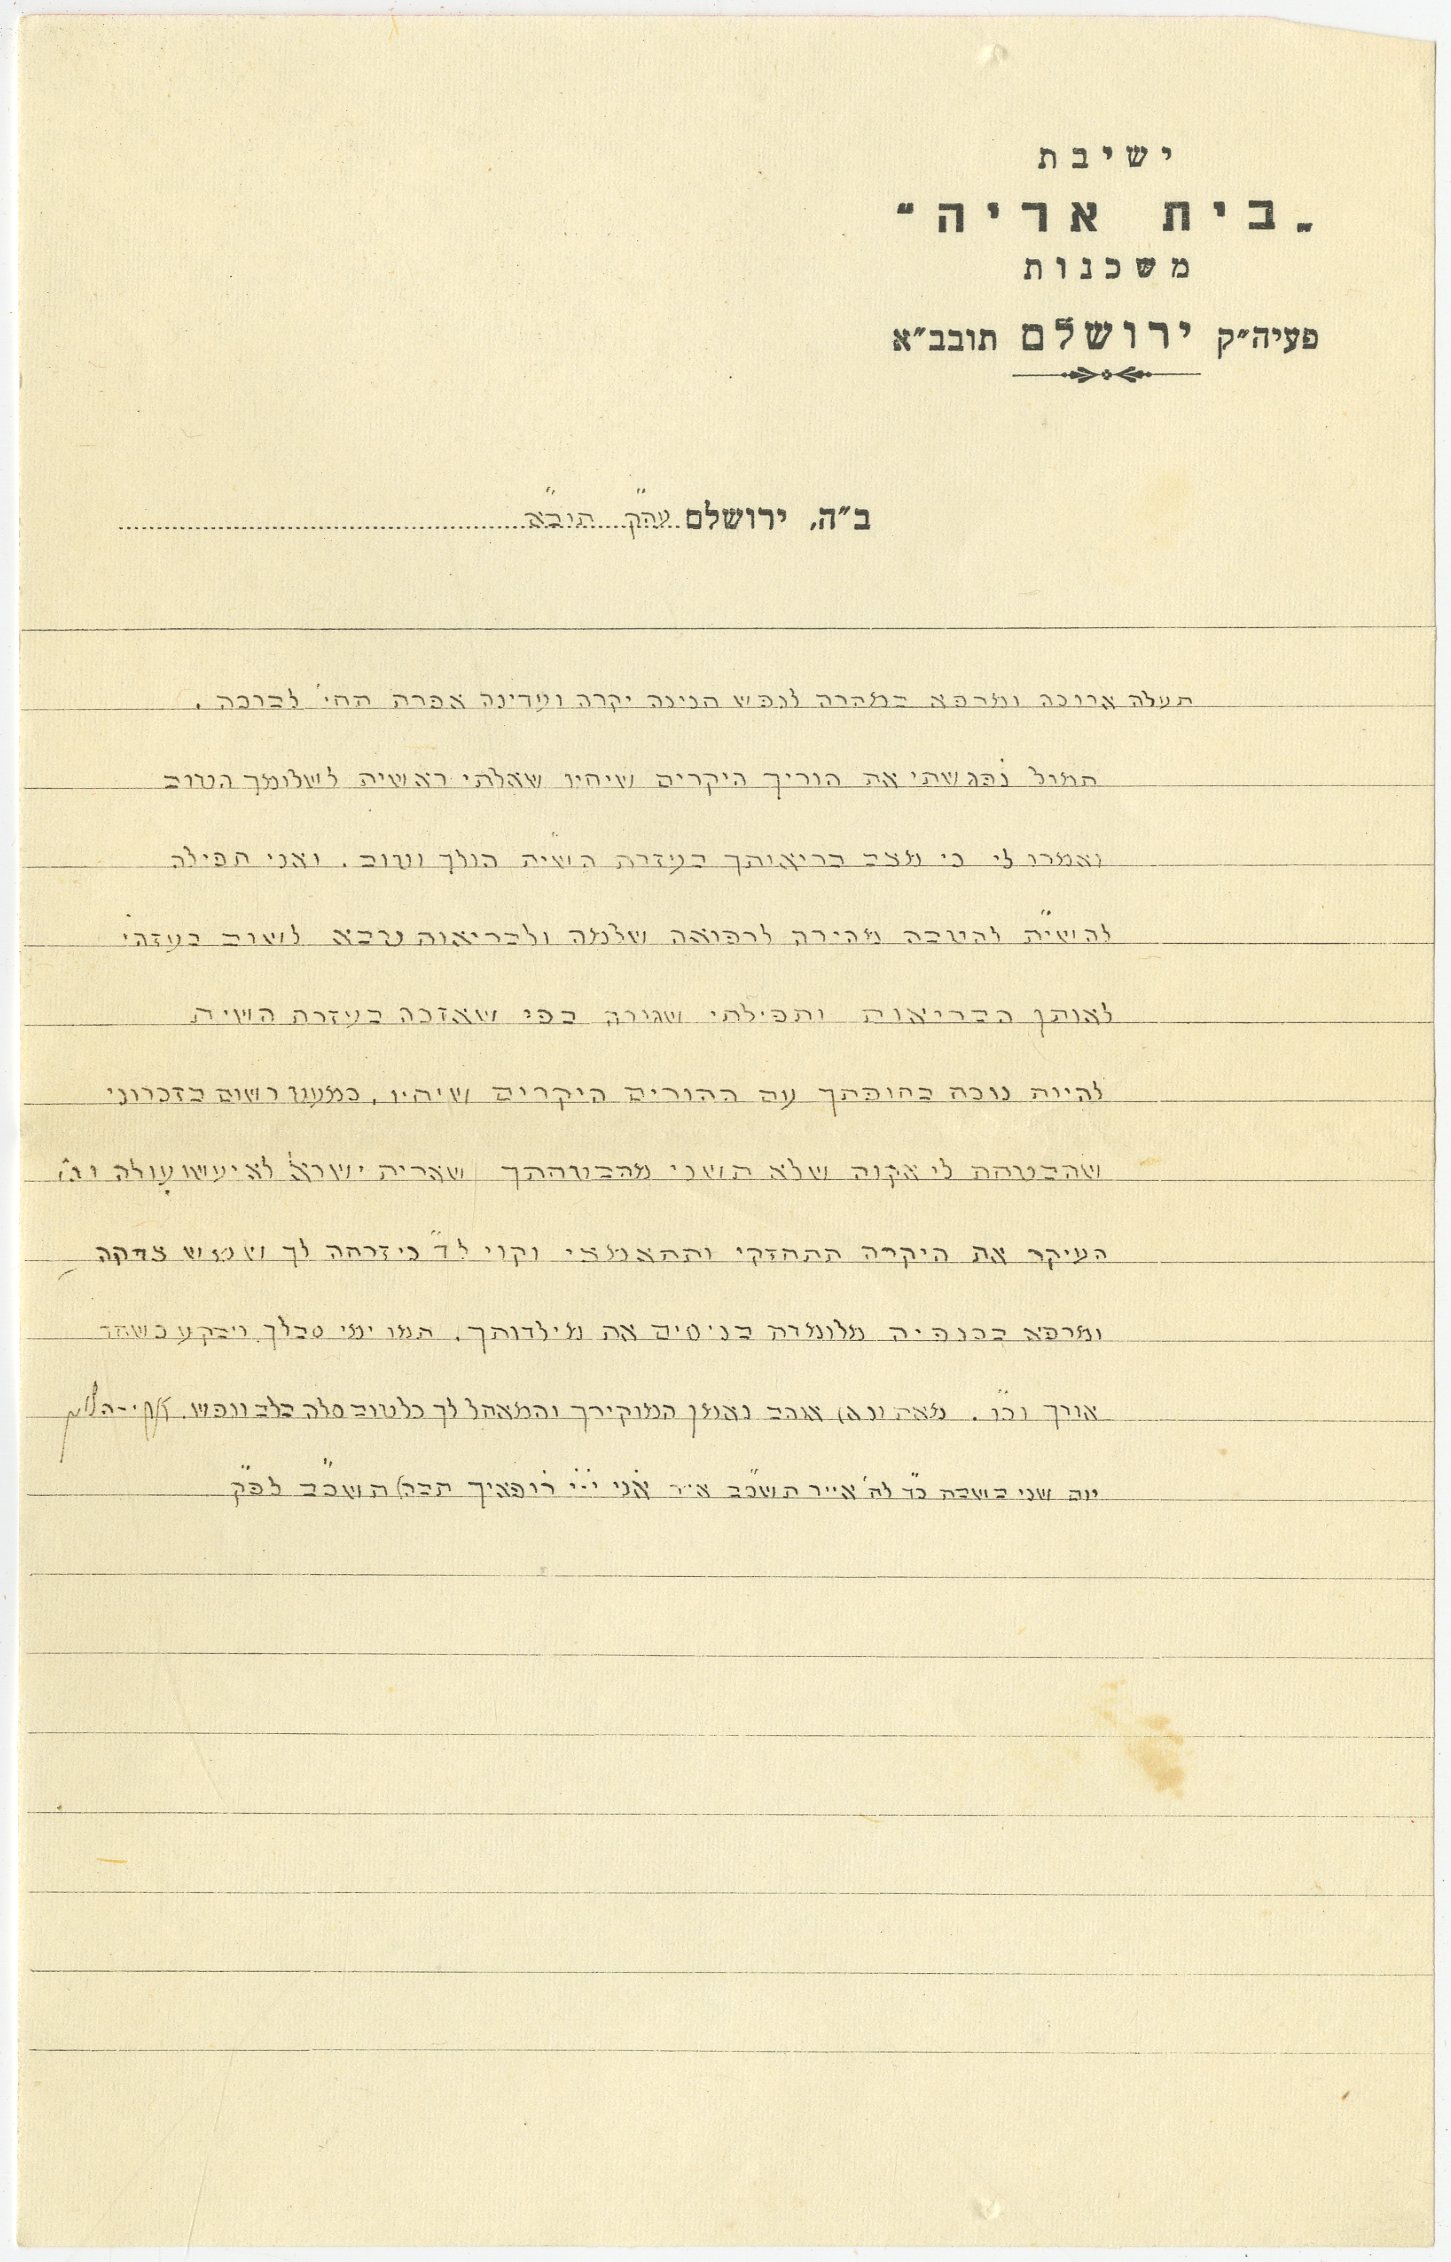 ישיבת
„בית אריה"
משכנות
פעיה״ק ירושלם תובב״א
ב״ה, ירושלם עה״ק תוב״א
תעלה ארוכה ומרפא במהרה לנפש הנינה יקרה ועדינה אפרה תחי' לברכה.
תמול נפגשתי את הוריך היקרים שיחיו שאלתי ראשית לשלומך הטוב
ואמרו לי כי מצב בריאותך בעזרת השי״ת הולך וטוב. ואני תפילה
להשי״ת להטבה מהירה לרפואה שלמה ולבריאות טובא לשוב בעזה״י
לאותן הבריאות ותפילתי שגורה בפי שאזכה בעזרת השי״ת
להיות נוכח בחופתך עם ההורים היקרים שיחיו. כמעט רשום בזכרוני
שהבטחת לי אקוה שלא תשני מהבטחתך שארית ישראל לא יעשו עולה
העיקר את היקרה תתחזקי ותתאמצי וקוי לד' כי זרחה לך שמש צדקה
ומרפא בכנפיה מלומדת בניסים את מילדותך. תמו ימי סבלך ויבקע כשחר
אורך וכו'. אוהב נאמן המוקירך והמאחל לך כלטוב סלה בלב ונפש.
יום שני בשבת כ״ד לח' אייר תשכ״ב אני י-י רופאיך תשכ״ב לפ״ק